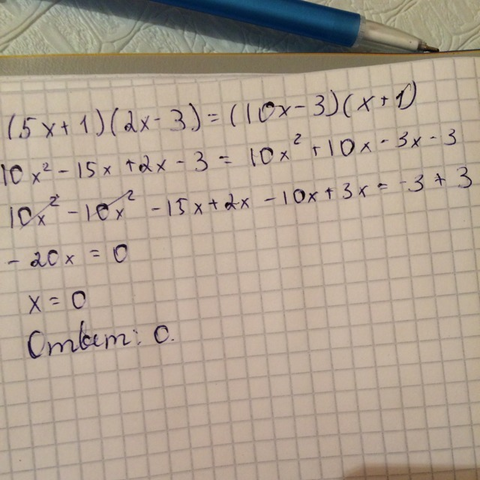 (5x+1)(2x-3)=(10x-3)(x+1)
10x²-15x+2x-3=10x²+10x-3x-3
10x²-10x²-15x+2x-10x+3x=-3+3
-20x=0
x=0
Ответ: 0.